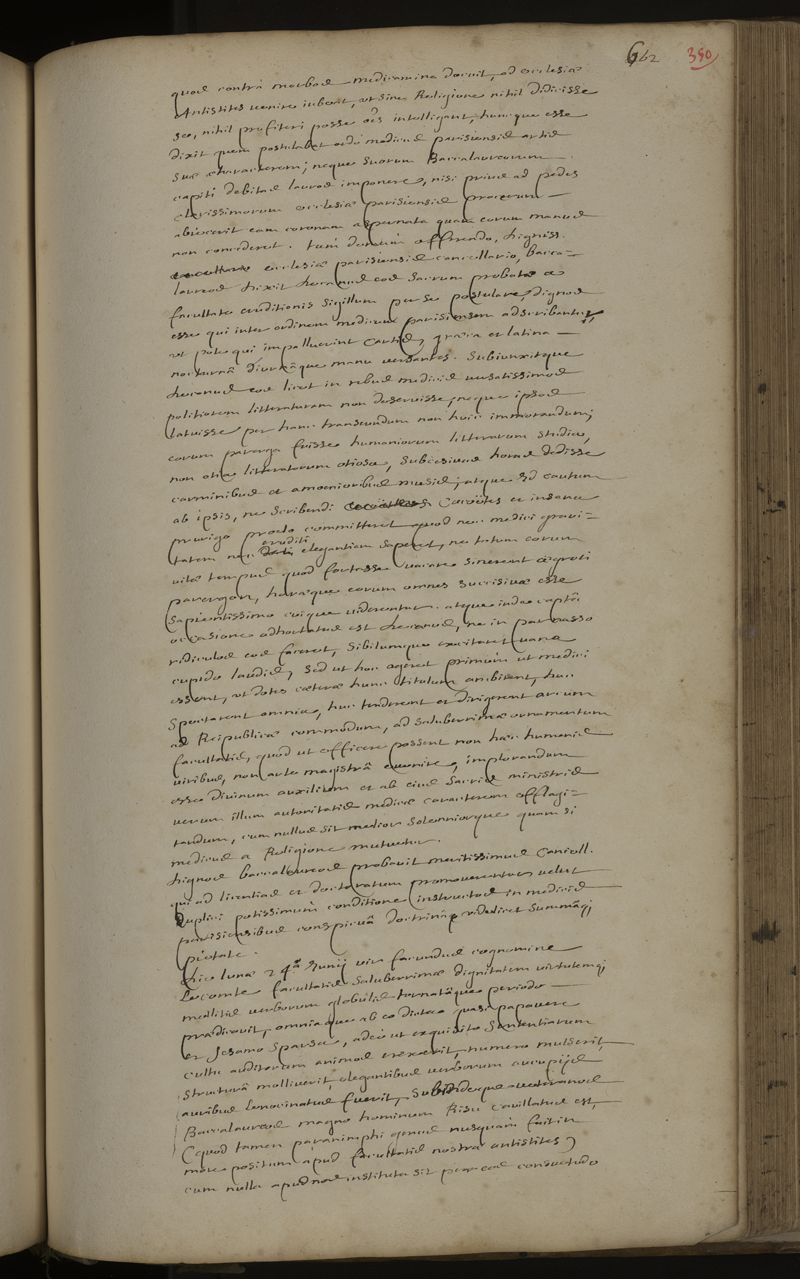 662 380
quae contra morbos medicamina docuit, ad ecclesiae
Antistites venire iubeat, ut sine Religione nihil didicisse
se, nihil profiteri posse oes intelligant, hunc que esse
dixit quem postulabat ordo medicus parisiensis artis
suae characterem; neque suorum Baccalaureorum
capiti debitas lauros imponere, nisi prius ad pedes
clarissimorum ecclesiae parisiensis procerum
abiecerit eam coronam aspernata quam eorum manus
non concederet. tum donum offerendo, digniss.
ecclesiae parisiensis cancellario, bacca=
laureos dixit hermnus eos sacrum probatae a
facultate eruditionis sigillum per se postulare, dignos
esse qui inter ordinem medicum parisiensem adscribantur,
ut pote qui impalluerint cartis, graeca et latina
nocturnâ diurnâque manu versantes. subiunxitque
eos licet in rebus medicis versatissimos
politiorem litteraturam non deseruisse, neque ipsos
latuisse per hanc transeundum non huic immorandum;
eorum parerga fuisse humaniorum litterarum studia,
non otia litteratorum otiosa, subcesivas horas dedisse
carminibus et amoenioribus musis; atque id cautum
ab ipsis, ne scribendi cacoëtes et insana
prurigo praelo committeret quod nec medici gravi=
tatem nec eruditi elegantiam saperet, ne totum eorum
vitae tempus quod fortasse vacare sinerent aegroti
parergon, horaeque eorum omnes succisivae esse
sapientissimo cuique viderentur. atque inde captâ
occasione adhortatus est, ne in parnasso
ridiculos eos faceret, sibilumque excitaret vana
cupido laudis, sed ut hoc agerent primùm ut medici
essent, ut dotes caeterae hunc titulum ambirent, huc
spectarent omnia, huc tenderent et dirigerent arcum
ad Reipublicae commodum, ad saluberrimae ornamentum
facultatis, quod ut efficere possent non hoc humanis
viribus, non arte magistrâ evenire, implorandum
esse divinum auxilium et ab eius sacris ministris
verum illum autoritatis medicae caracterem efflagi=
tandum, cum nullus sit medicus solemniorque quam si
medicus a Religione mutuetur.
dignos baccalaureos probavit meritissimus Cancell.
qui ad licentias et doctoratum promoverentur velut
duplici potissimùm conditione instructos in medicis
parisiensibus conspicuâ doctrinâ videlicet summâq;
pietate.
Die lunae 24ᵃ Junij vir facundus cognomine
Lecomte facultatis saluberrimae dignitatem virtutemq;
mellitis verborum globulis tornatâque periodo
praedicavit, omniaque ab eo dictae quasi papavere
et sesamo sparsa, adeò ut exquisito sententiarum
cultu auditorum animos erexerit, numero mulserit
structurâ molliverit, elegantibus verborum aucupijs
auribus lenocinatus fuerit, subindeque veteranos
Baccalaureos magno hominum Risu cavillatus est,
(quod tamen paranimphi genus nusquam fuit in
more positum apud facultatis nostrae antistites)
cum nulla apud nos instituta sit per eos consuetudo